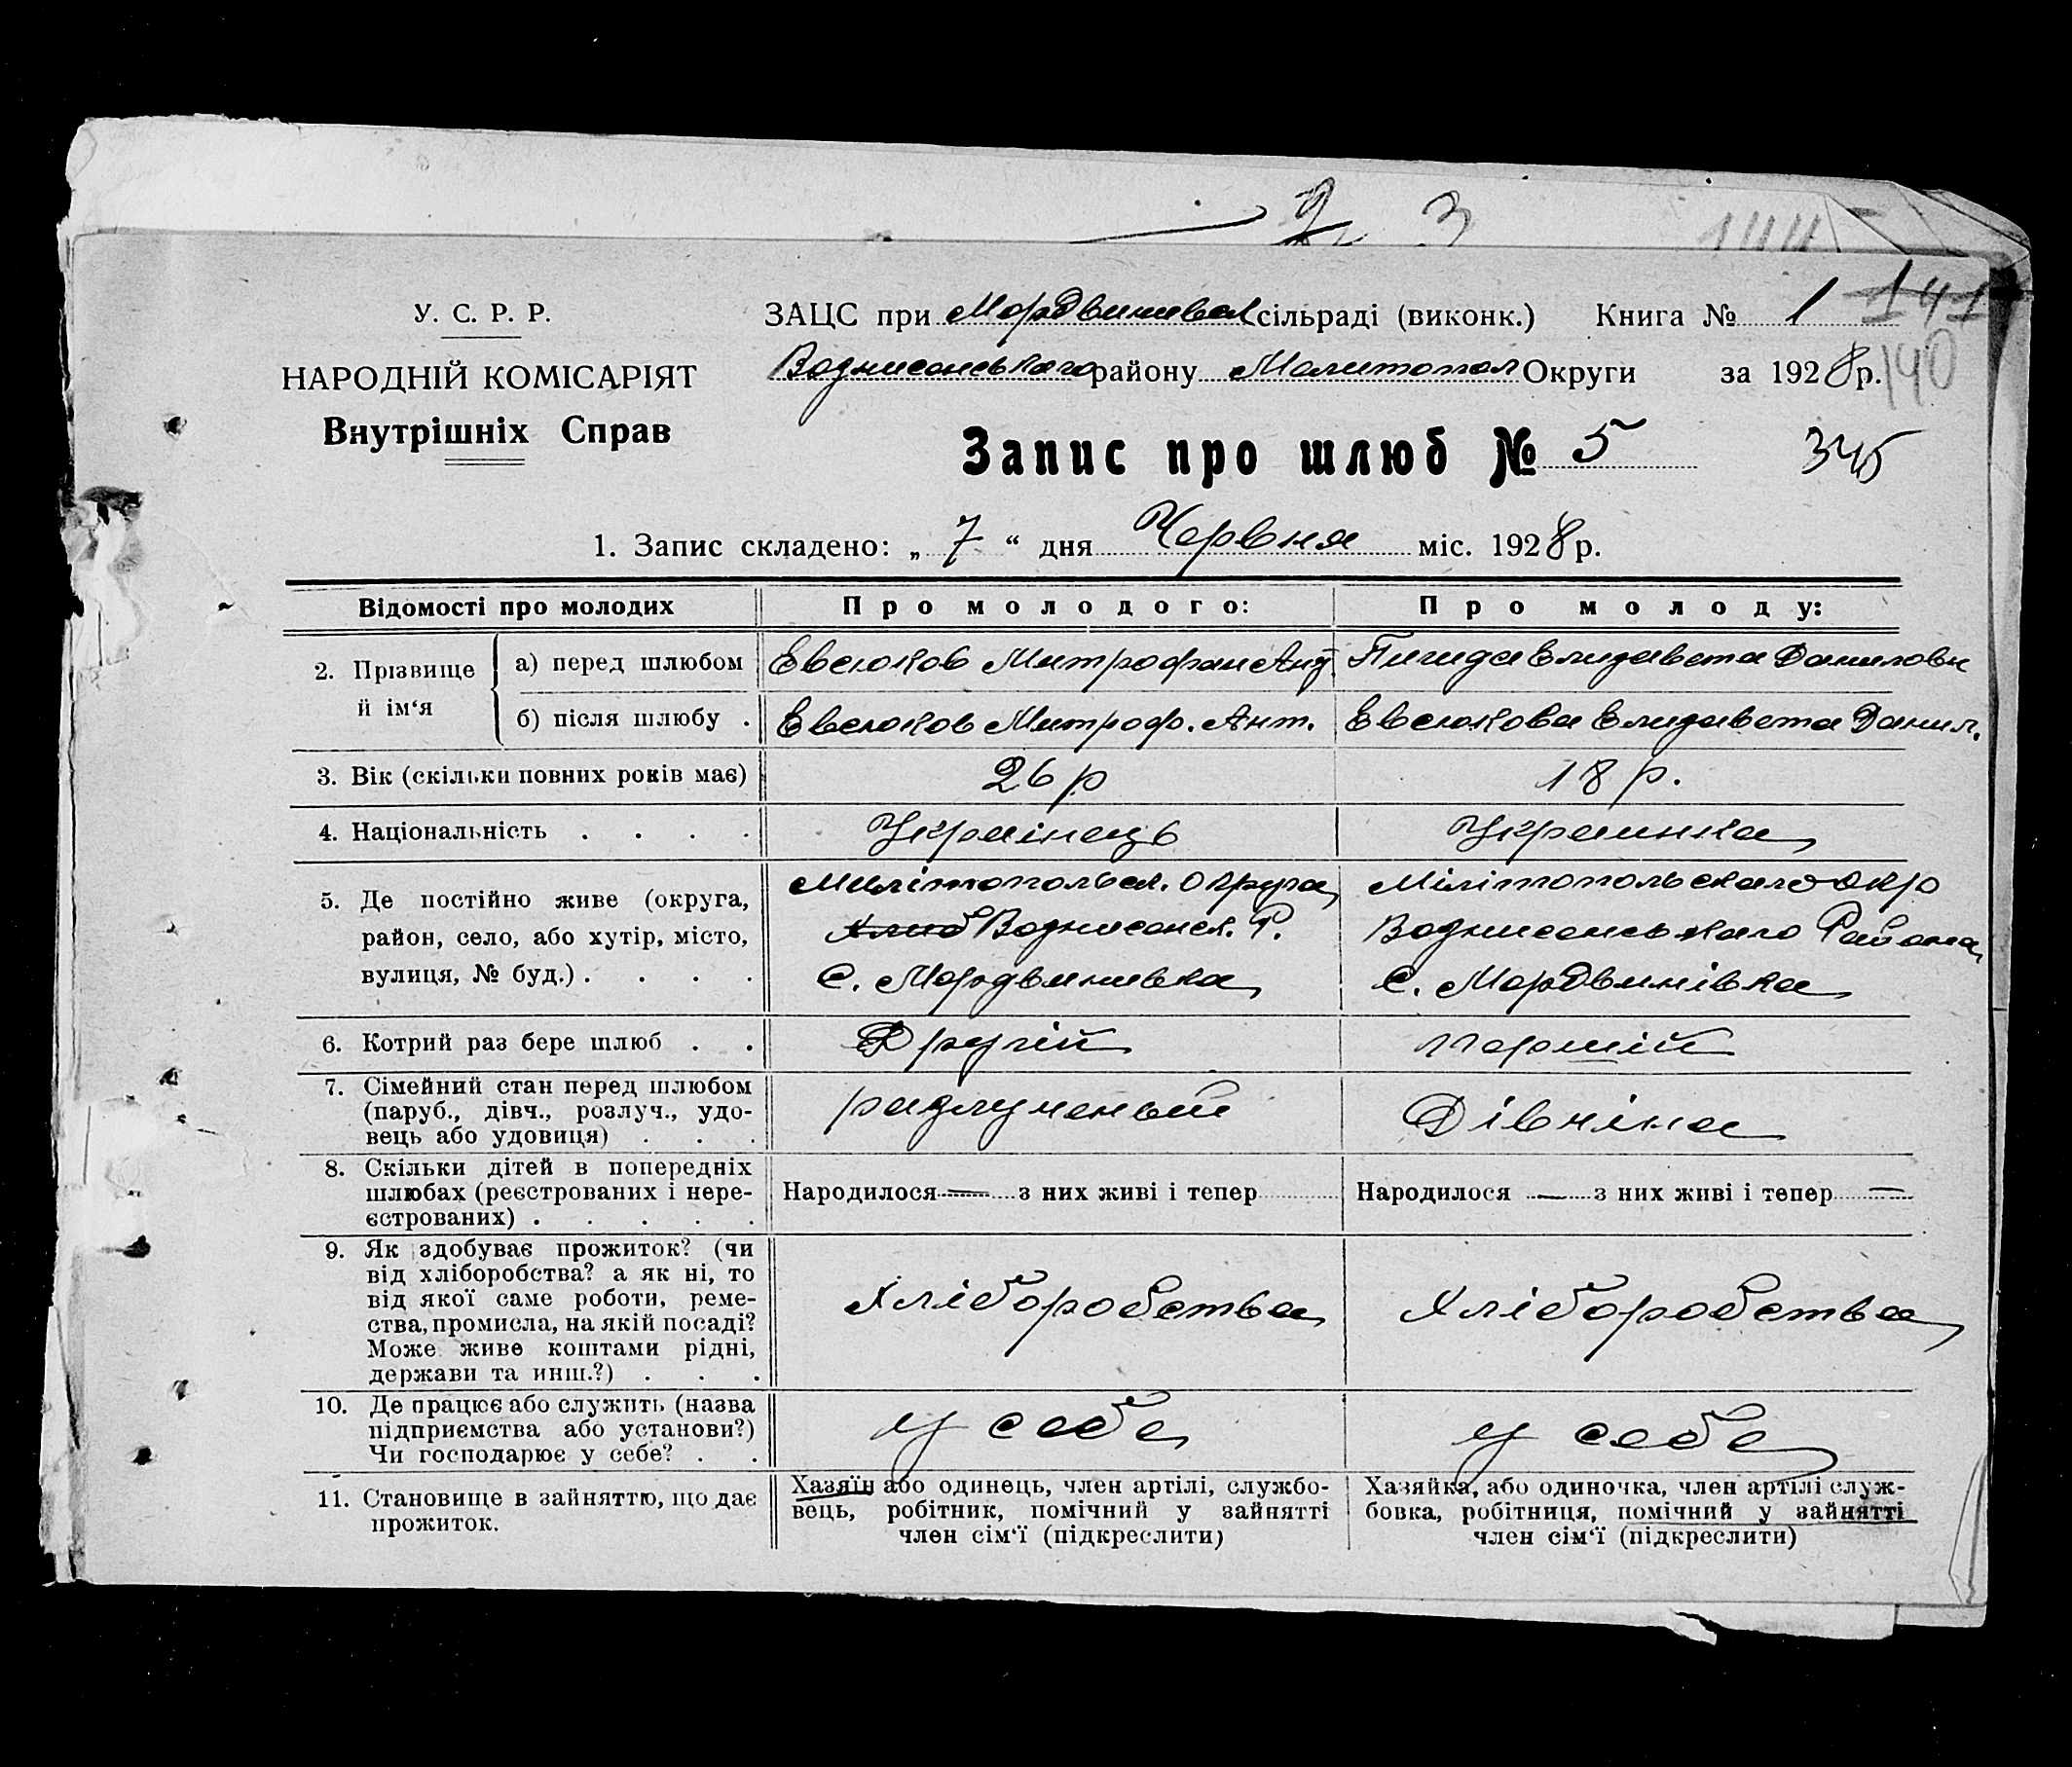 2 3
144
У. С. Р. Р.
НАРОДНІЙ КОМІСАРІЯТ
Внутрішніх Справ
ЗАЦС при Мордвинивск сільраді (виконк.) Книга № 1 141
Вознисенського району Мелитопол Округи за 1928 р. 140
Запис про шлюб № 5 345
1. Запис складено: „ 7 “ дня Червня міс. 1928 р.
Відомості про молодих Про молодого: Про молоду:
2. Прізвище й ім‘я
а) перед шлюбом Евсюков Митрофан Ант. Пигида Елизавета Даниловн
б) після шлюбу . Евсюков Митроф. Ант. Евсюкова Елизавета Данил.
3. Вік (скільки повних років має) 26 р 18 р.
4. Національність . . . . Украінець Украинка
5. Де постійно живе (округа, Милітопольск. Округа Мілітопольскаго Окр
район, село, або хутір, місто, Вознисенск. Р. Вознисенського Района
вулиця, № буд.) . . . . С. Мордвинивка С. Мордвинівка
6. Котрий раз бере шлюб . . Другій першій
7. Сімейний стан перед шлюбом
(паруб., дівч., розлуч., удо- разлученый Дівчіна
вець або удовиця) . . .
8. Скільки дітей в попередніх
шлюбах (реєстрованих і нере- Народилося — з них живі і тепер Народилося — з них живі і тепер —
єстрованих) . . . . .
9. Як здобуває прожиток? (чи
від хліборобства? а як ні, то
від якої саме роботи, реме- Хліборобства Хліборобства
ства, промисла, на якій посаді?
Може живе коштами рідні,
держави та инш.?) . . .
10. Де працює або служить (назва
підприємства або установи?) у себе у себе
Чи господарює у себе? . .
11. Становище в зайняттю, що дає прожиток.
Хазяїн або одинець, член артілі, службо- Хазяйка, або одиночка, член артілі служ-
вець, робітник, помічний у зайнятті бовка, робітниця, помічний у зайнятті
член сім‘ї (підкреслити) член сім‘ї (підкреслити)